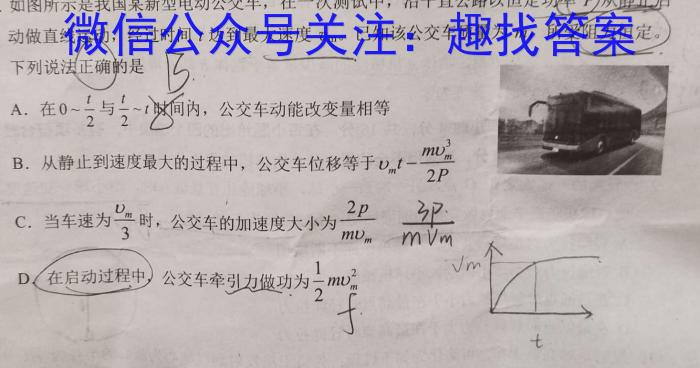 如图所示是我国某新型电动公交车，在一次测试中，沿平直公路以恒定功率 P 从静止启
动做直线运动，经过时间 t 达到最大速度
微信公众号关注：趣找答案
下列说法正确的是 B.
A．在 0～t/2 与 t/2～t 时间内，公交车动能改变量相等
B．从静止到速度最大的过程中，公交车位移等于 υₘt－mυₘ³/2P
C．当车速为 υₘ/3 时，公交车的加速度大小为 2p/mυₘ 3P/mVm
D．在启动过程中，公交车牵引力做功为 1/2 mυₘ²
f
Vm
t